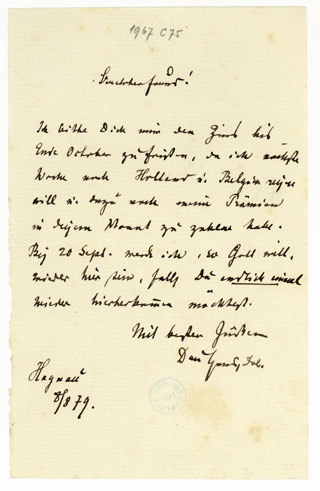 1967 C75
Ich bitte Dich mir den Zins bis
Ende October zu fristen, da ich nächste
Woche nach Holland u. Belgien reise
will u. dazu noch meine Prämien
in diesem Monat zu zahlen habe.
Bis 20 Sept. werde ich, so Gott will,
wieder hier sein, falls Du endlich einmal
wieder hierherkommen möchtest.
Mit besten Grüßen
Dein
Hagnau
8/8 79.